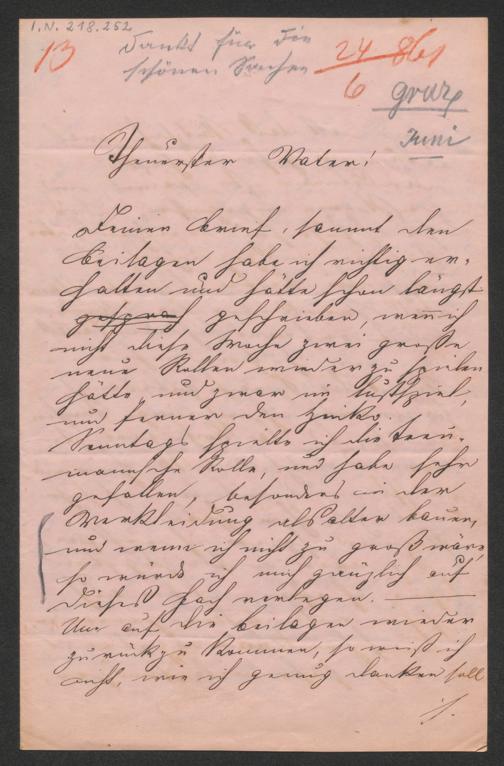 I.N. 218.252
13
Dankt für die
schönen Sachen
24 861
6
Graz
Juni
Theuerster Vater!
Deinen Brief, sammt den
Beilagen habe ich richtig er-
halten und hätte schon längst
geschrieben, wenn ich
nicht diese Woche zwei große
neue Rollen wieder zu spielen
hätte, und zwar im Lustspiel,
und ferner den Zinko.
Sonntags spielte ich die Treu-
mann'sche Rolle, und habe sehr
gefallen, besonders in der
Verkleidung als alter Bauer,
und wenn ich nicht zu groß wäre,
so würde ich mich gänzlich auf
dieses Fach verlegen. —
Um auf die Beilagen wieder
zurückzukommen, so weiß ich
nicht, wie ich genug danken soll